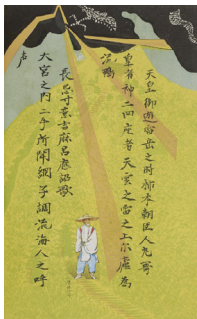 天皇御遊雷岳之時柿本朝臣人
皇者神二四座者天雲之雷之上尓廬為
流鴨
長忌寸意吉麻呂應詔歌
大宮之内二手所聞網子調流海人之呼
声